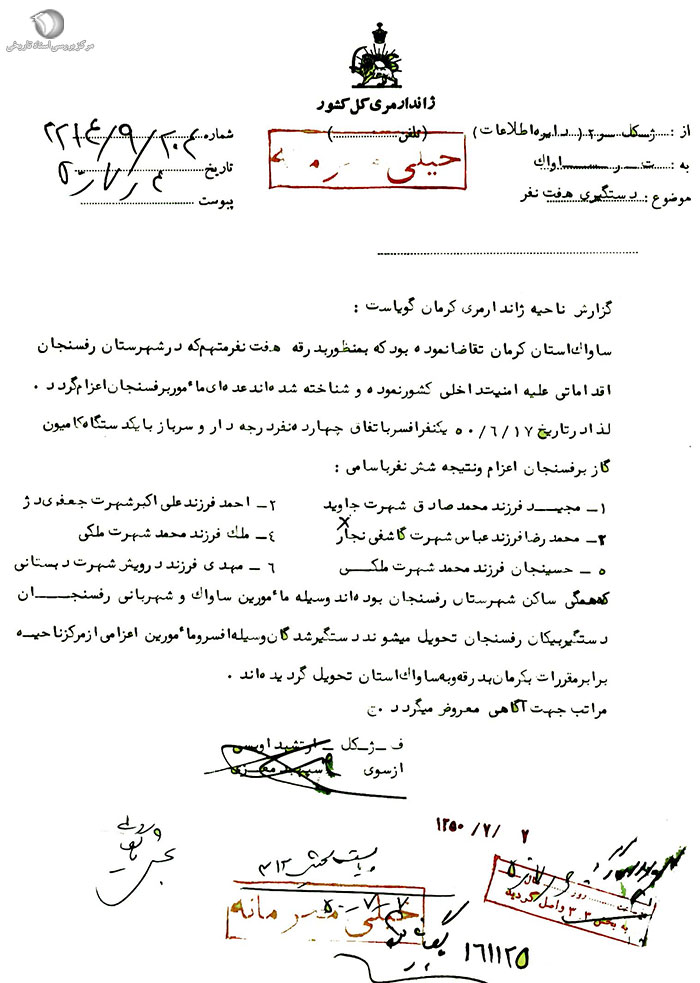 مرکز بررسی اسناد تاریخی
ژاندارمری کل کشور
از : ژکل سر۲ ( دایره اطلاعات ) (تلفن )
به : ت ر ساواك
موضوع : دستگیری هفت نفر
شماره ۲۲-۴/۹/۲۰۲
تاریخ ۵۰/۷/۴
پیوست
خیلی محرمانه
گزارش ناحیه ژاندارمری کرمان گویاست :
ساواك استان کرمان تقاضا نموده بود که بمنظور بدرقه هفت نفر متهم که در شهرستان رفسنجان
اقداماتی علیه امنیت داخلی کشور نموده و شناخته شده اند عده ای مأمور برفسنجان اعزام گردد .
لذا در تاریخ ۵۰/۶/۱۷ یکنفر افسر باتفاق چهارده نفر درجه دار و سرباز با یکدستگاه کامیون
گاز برفسنجان اعزام و نتیجه شش نفر باسامی :
۱ – مجید فرزند محمد صادق شهرت جاوید ۲ – احمد فرزند علی اکبر شهرت جعفری دژ
۳ – محمد رضا فرزند عباس شهرت کاشفی نجار ۴ – ملك فرزند محمد شهرت ملکی
۵ – حسینجان فرزند محمد شهرت ملکی ۶ – مهدی فرزند درویش شهرت دهستانی
که همگی ساکن شهرستان رفسنجان بوده اند وسیله مأمورین ساواك و شهربانی رفسنجان
دستگیر بیگان رفسنجان تحویل میشوند دستگیر شدگان وسیله افسر و مأمورین اعزامی از مرکز ناحیه
برابر مقررات بکرمان بدرقه و به ساواك استان تحویل گردیده اند .
مراتب جهت آگاهی معروض میگردد . ح
ف – ژ – کل – ارتشبد اویسی
از سوی سپهبد
۱۲۵۰ /۷/ ۷
ریاست بخش ۳۱۲
۵۰-۷-۷
خیلی محرمانه
روز سال
به بخش ۳۰۲ واصل گردید
بایگانی
۱۶۱۱۲۵